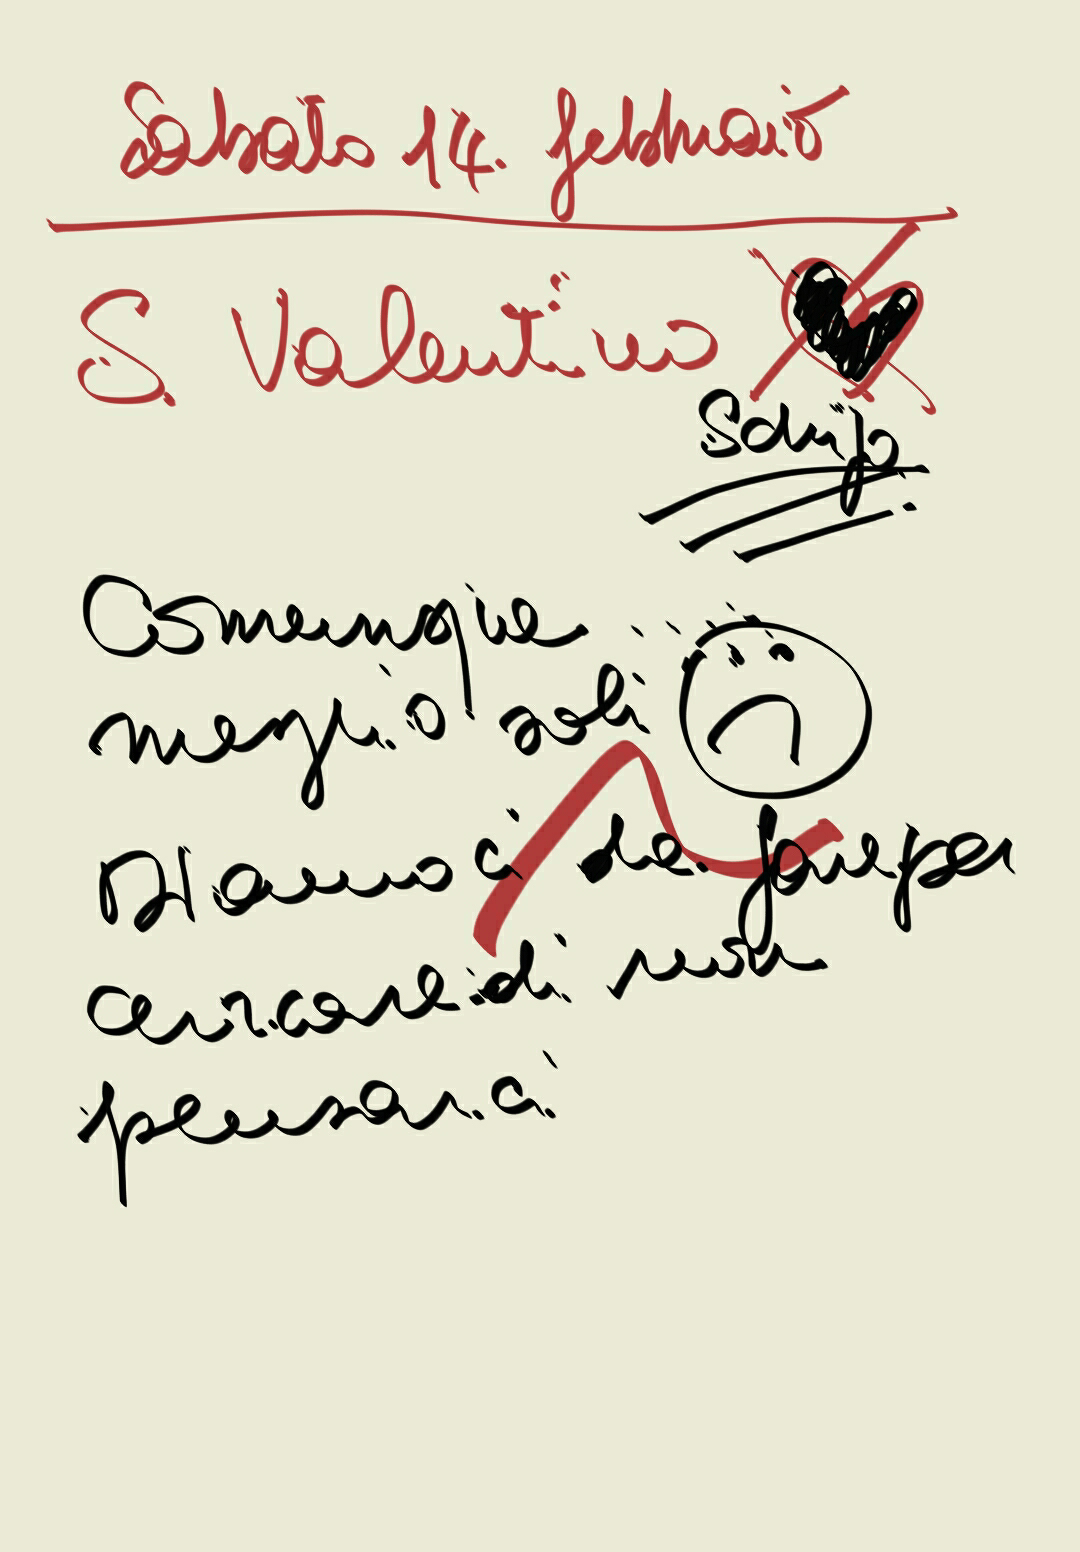 Sabato 14. febbraio
S. Valentino
Schifo
Comunque
meglio soli
Diamoci da fare per
cercare di non
pensarci